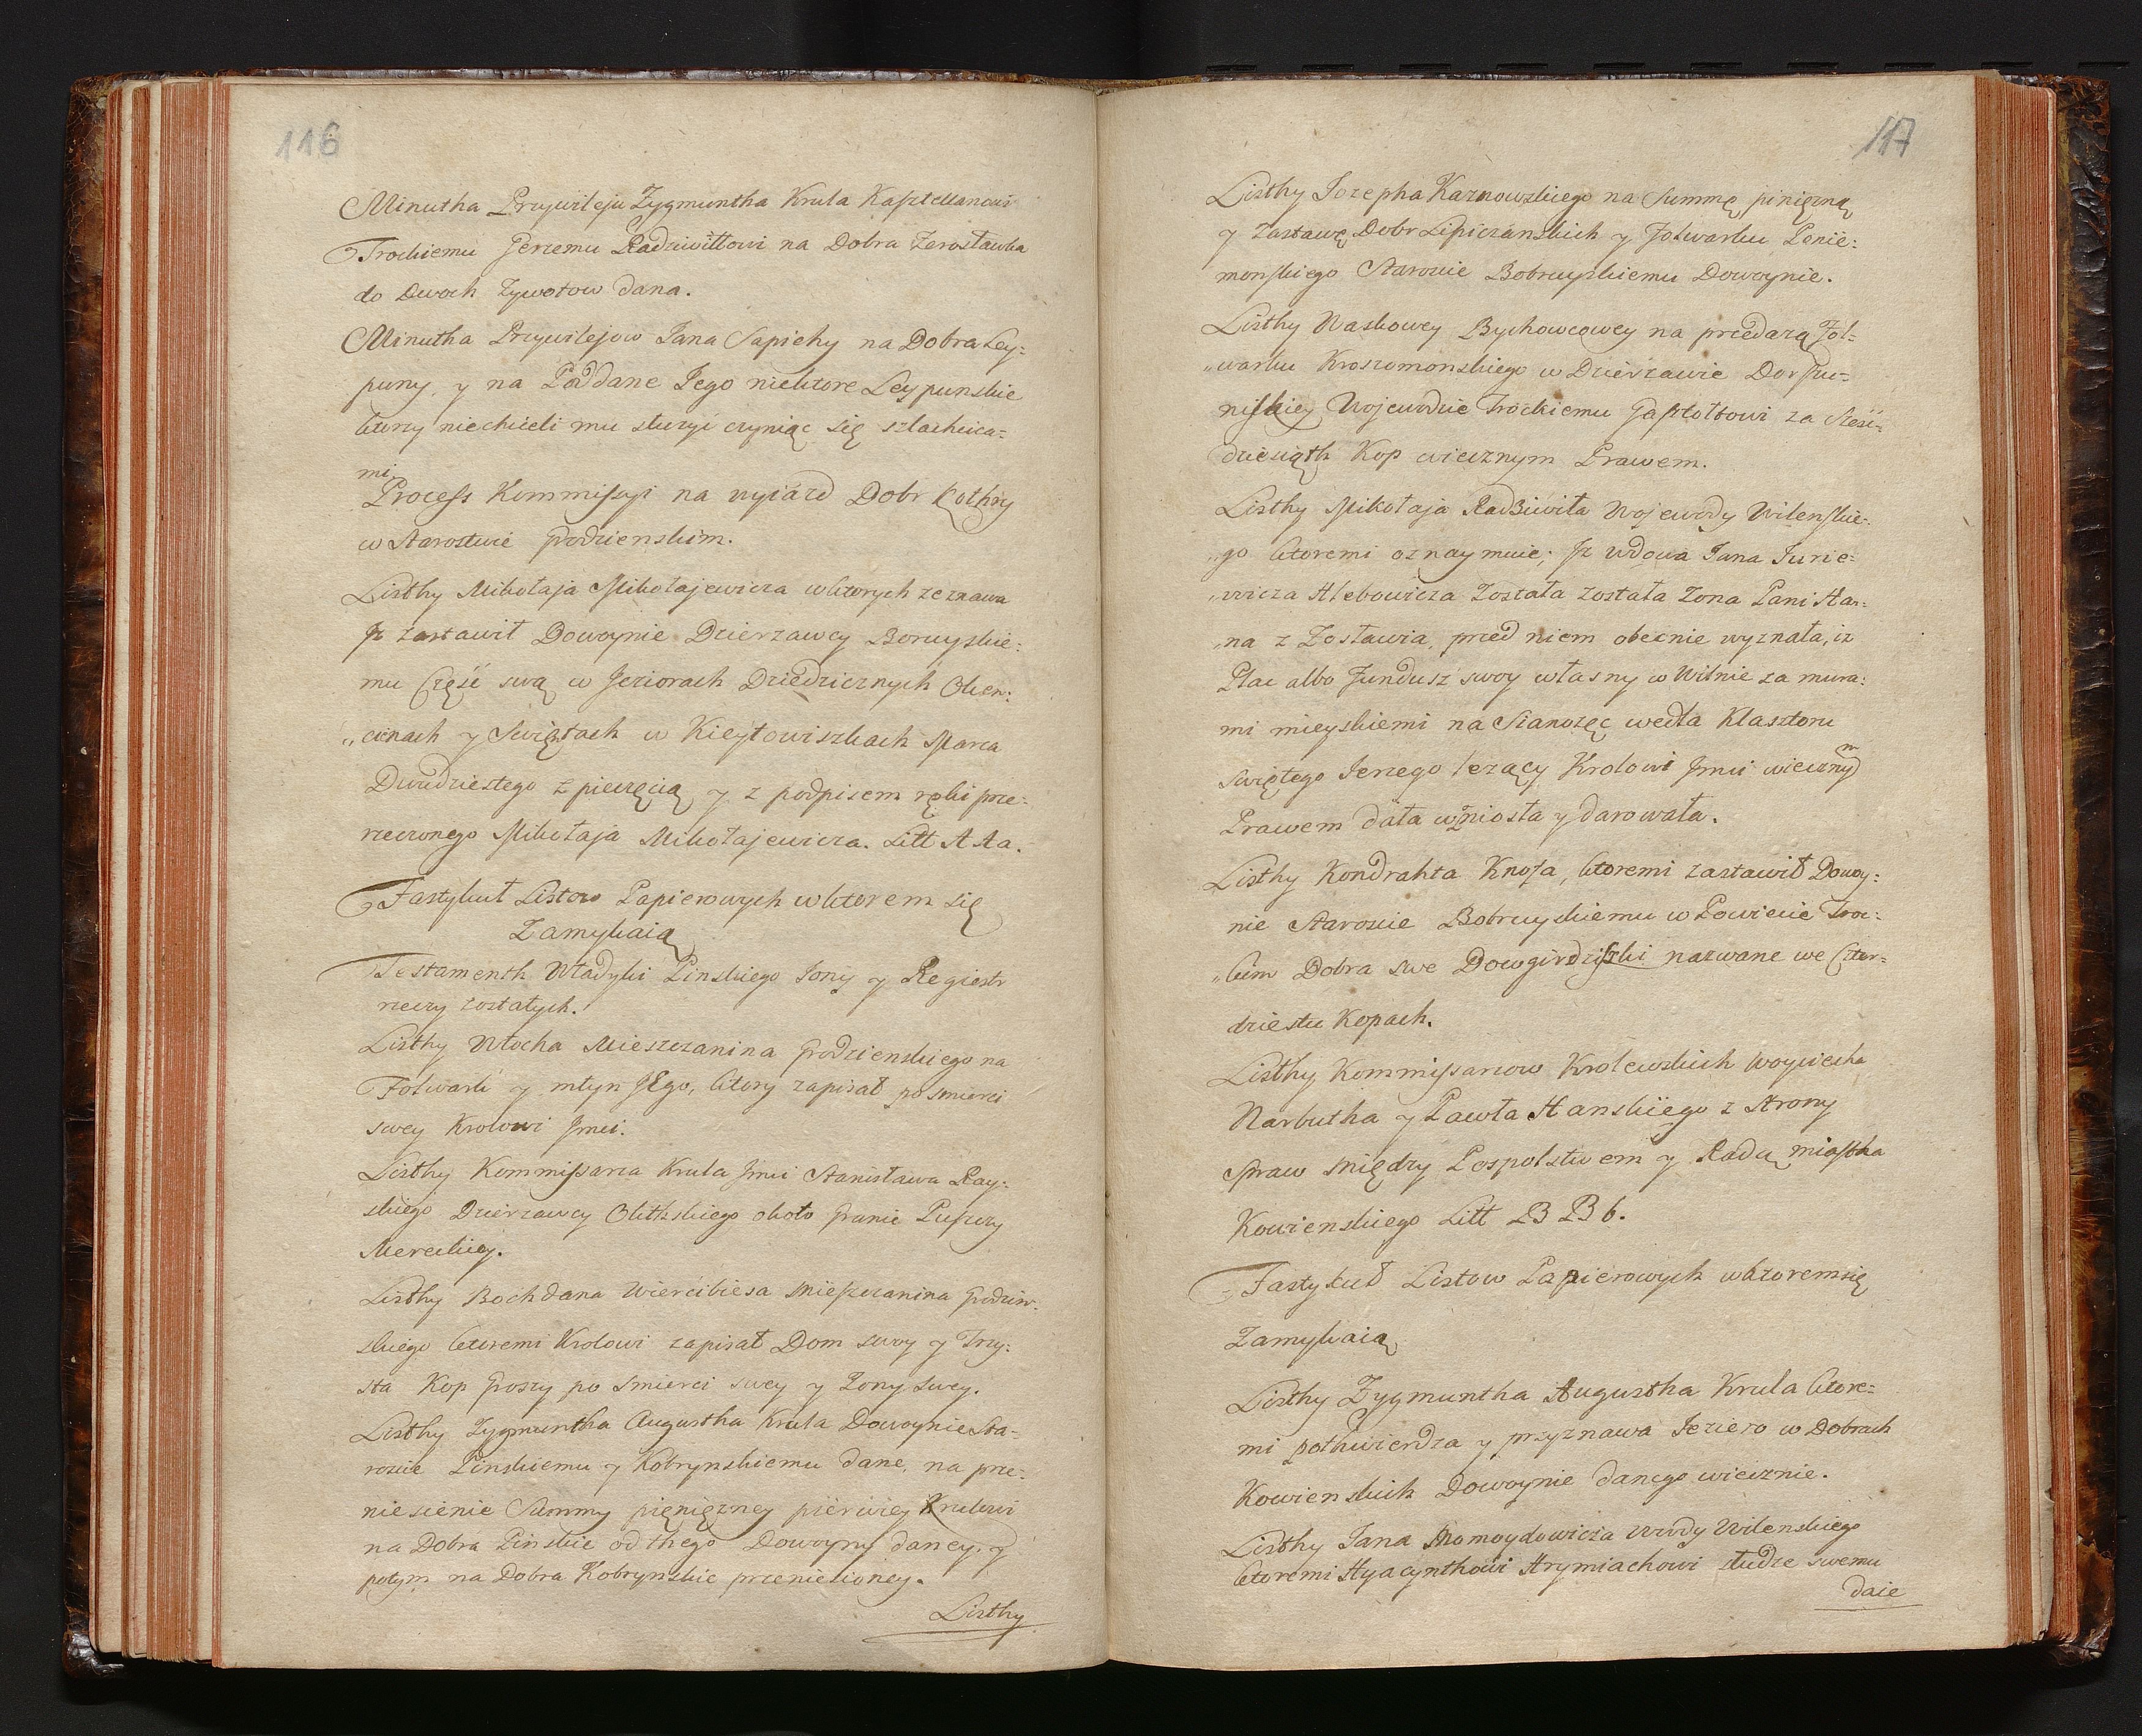 116
Minutha Przywileju Zygmuntha Krula Kasztellanowi
Trockiemu Jerzemu Radziwiłłowi na Dobra Zerosławka
do Dwoch Zywotow dana.
Minutha Przywilejow Jana Sapiehy na Dobra Ley:
puny, y na Poddane Jego niektore Leypunskie
ktorzy niechcieli mu służyć czyniąc się szlachcica:
mi
Process Kommissyi na wyiazd Dobr Kothry
w Starostwie Grodzienskim.
Listhy Mikołaja Mikołajewicza wktorych zeznawa
Jz zastawił Dowoynie Dzierzawcy Boruyskie:
mu Część swą w Jeziorach Dziedzicznych Oken:
„cinach y Swiętach w Kieytowiszkach Marca
Dwudziestego z pieczęcią y z podpisem ręki prze:
rzeczonego Mikołaja Mikołajewicza. Litt A Aa.
Fastykuł Listow Papierowych wktorem się
Zamykaią
Testamenth Władyki Pinskiego Jony y Regiestr
rzeczy zostałych.
Listhy Włocha Mieszczanina Grodzienskiego na
Folwark y młyn JEgo, ktory zapisał po smierci
swey Krolowi Jmci.
Listhy Kommissarza Krula Jmci Stanisława Ray:
skiego Dzierzawcy Olitskiego około Granic Puszczy
Mereckiey.
Listhy Bochdana Wiercibiesa Mieszczanina Grodzien:
skiego ktoremi Krolowi zapisał Dom swoy y Trzy:
sta Kop Groszy po smierci swey y Zony swey.
Listhy Zygmuntha Augustha Krula Dowoynie Sta-
roscie Pinskiemu y Kobrynskiemu dane, na prze:
niesienie Summy pięniężney pierwiey Krulowi
na Dobra Pinskie od thego Dowoyny daney. y
potym na Dobra Kobrynskie przeniesioney.
Listhy
117
Listhy Jozepha Karnowskiego na Summę pinięzną
y Zastawę Dobr Lipiczanskich y Folwarku Ponie:
monskiego Staroscie Bobruyskiemu Dowoynie.
Listhy Waskowey Bychowcowey na przedarzą Fol-
„warku Kroszomonskiego w Dzierzawie Dorsu-
niskiey Wojewodzie Trockiemu Gasztołtowi za Sześć-
dziesiąth Kop wiecznym Prawem.
Listhy Mikołaja Radziwiła Wojewody Wilenskie-
„go ktoremi oznaymuie; Jz wdowa Jana Jurie-
„wicza Hlebowicza Została została Zona Pani Han:
„na z Zosławia, przed niem obecnie wyznała, iz
Plac albo Fundusz swoy własny w Wilnie za mura:
mi mieyskiemi na Sianozęc wedla Klasztoru
swiętego Jerzego lezący Krolowi Jmci wiecznym
Prawem dała wzniosła y darowała.
Listhy Kondrahta Knosa, ktoremi zastawił Dowoy:
nie Staroscie Bobruyskiemu w Powiecie Troc:
„kim Dobra swe Dowgirdziszki nazwane we Czter-
dziestu Kopach.
Listhy Kommissarzow Krolewskich Woyciecha
Narbutha y Pawła Hanskiego z Strony
Spraw między Pospolstwem y Radą miastha
Kowienskiego Litt B B b.
Fastykuł Listow Papierowych wktorem się
Zamykaią
Listhy Zygmuntha Augustha Krula ktore-
mi pothwierdza y przyznawa Jezioro w Dobrach
Kowienskich Dowoynie danego wiecznie.
Listhy Jana Momoydowicza Wwdy Wilenskiego
ktoremi Hyacynthowi Hrymiachowi słudze swemu
daie